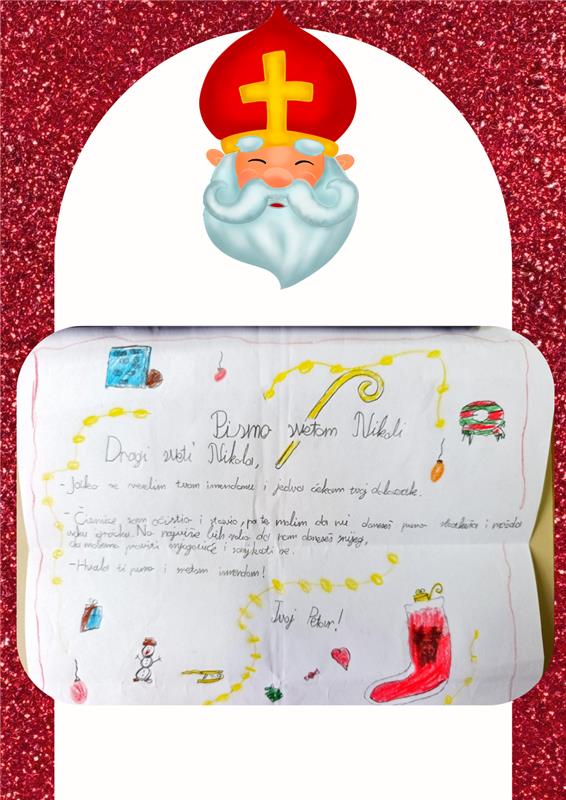 Pismo svetom Nikoli
Dragi sveti Nikola,
- Jako se veselim tvom imendanu i jedva čekam tvoj dolazak.
- Čizmice sam očistio i stavio, pa te molim da mi doneseš puno slatkiša i možda
neku igračku. No najviše bih volio da nam doneseš snijeg,
da možemo praviti snjegoviće i sanjkati se.
- Hvala ti puno i sretan imendan!
Tvoj Petar!